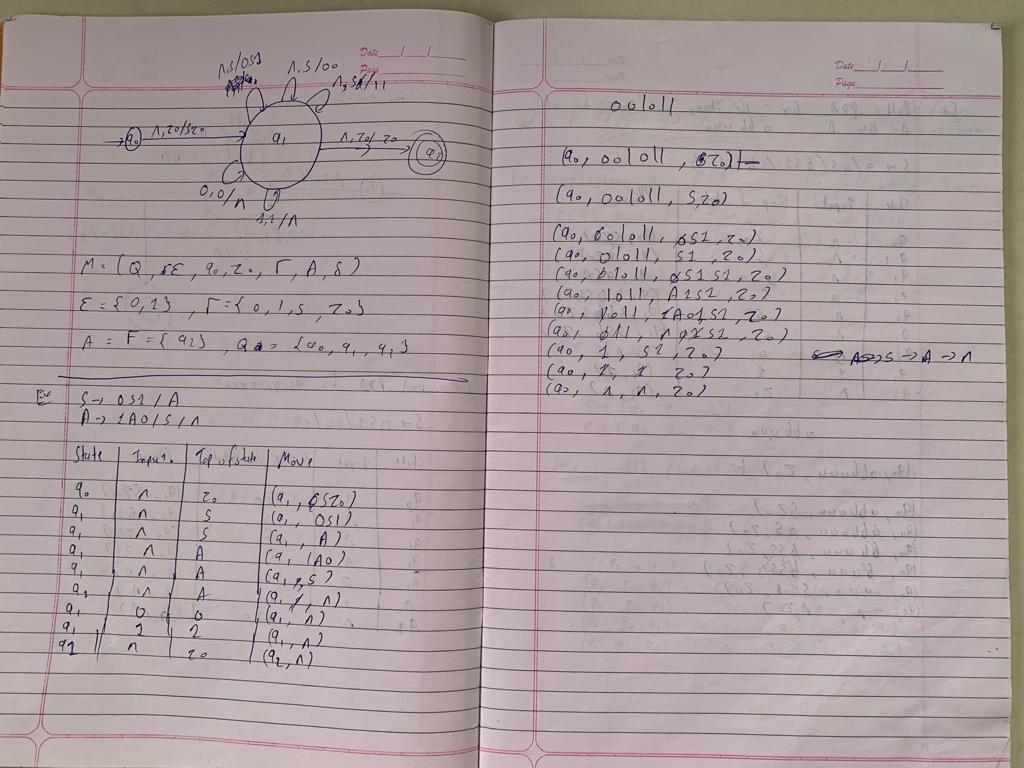 Date
Page
Λ,S/0S1
Λ,S/00
Λ,S/11
q0
Λ,z0/Sz0
q1
Λ,z0/z0
q2
0,0/Λ
1,1/Λ
M = (Q, Σ, q0, z0, Γ, A, δ)
Σ = {0,1}, Γ = {0,1,S,z0}
A = F = {q2}, Q = {q0, q1, q1}
Ex
S → 0S1/A
A → 1A0/S/Λ
State Input Top of stack Move
q0 Λ z0 (q1, Sz0)
q1 Λ S (q1, 0S1)
q1 Λ S (q1, A)
q1 Λ A (q1, 1A0)
q1 Λ A (q1, S)
Λ A (q1, Λ)
q1 0 0 (q1, Λ)
q1 1 1 (q1, Λ)
Λ z0 (q2, Λ)
Date
Page
001011
(q0, 001011, z0)⊢
(q0, 001011, S,z0)
(q0, 001011, 0S1, z0)
(q0, 01011, S1, z0)
(q0, 01011, 0S1S1, z0)
(q0, 1011, A1S1, z0)
(q0, 1011, 1A01S1, z0)
(q0, 011, Λ 01S1, z0)
(q0, 1, S1, z0) A→S→A→Λ
(q0, 1, 1 z0)
(q0, Λ, Λ, z0)